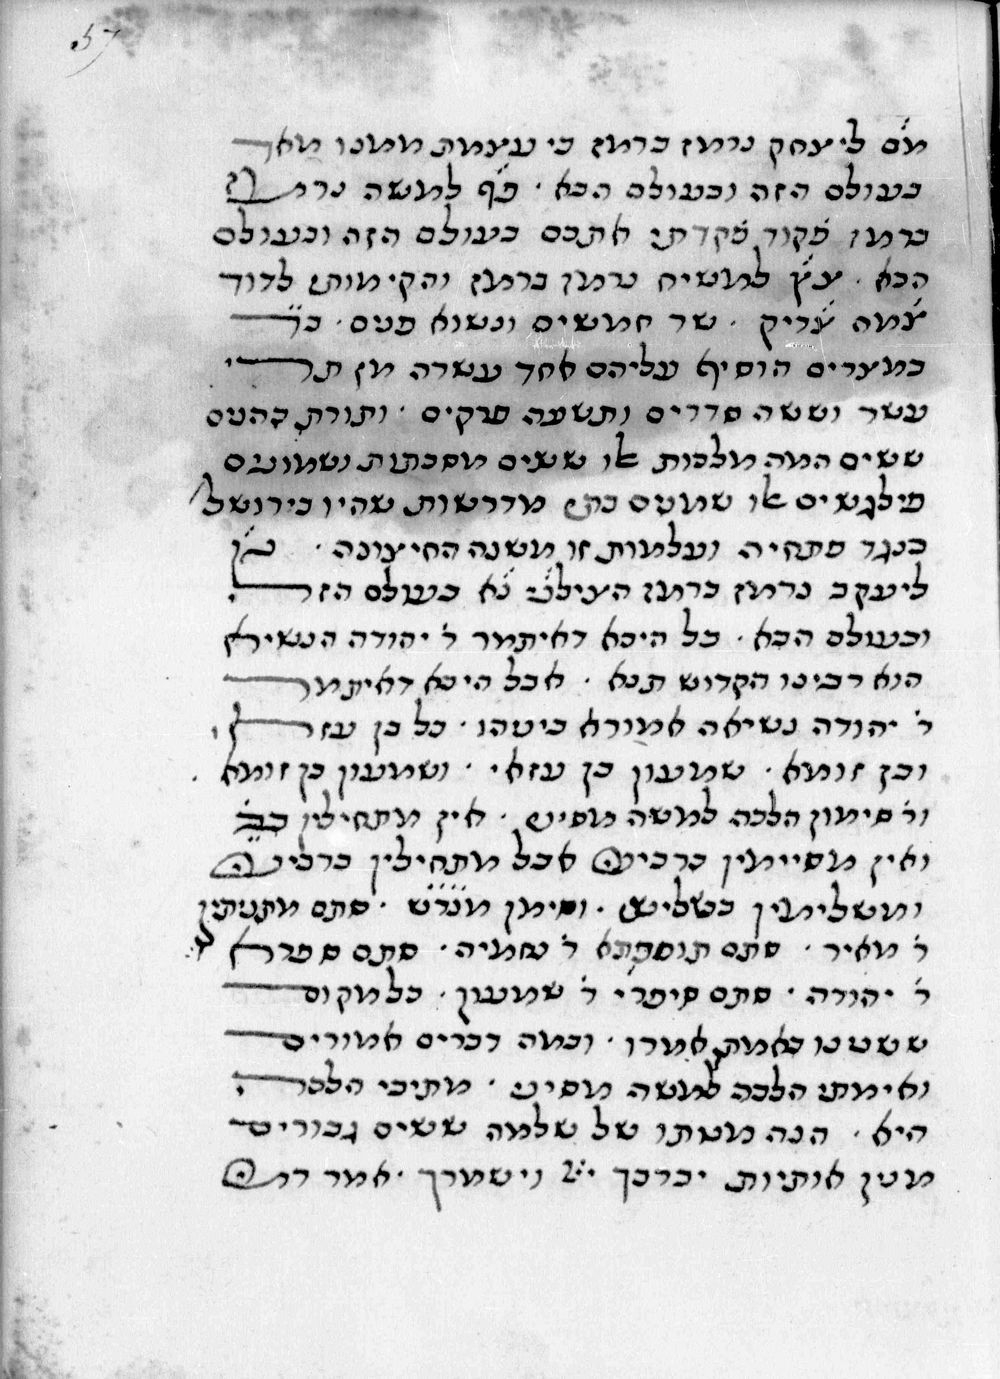 57
מ̇ם ליצחק נרמז ברמז כי עצמת ממנו מאד
בעולם הזה ובעולם הבא · פ̇ף למשה נרמז
ברמז פקוד פקדתי אתכם בעולם הזה ובעולם
הבא · צ̇ץ למשיח נרמז ברמז והקימותי לדוד
צמח צדיק · שר חמשים ונשוא פנים · כך
במצרים הוסיף עליהם אחד עשרה מן תרי
עשר וששה סדרים ותשעה פרקים · ותורת כהנים
ששים המה מלכות אלו ששים מסכתות ושמונים
פילגשים אלו שמנים בתי מדרשות שהיו בירושל
כנגד פתחיה ועלמות זו משנה החיצונה ·
ליעקב נרמז ברמז הצילני נא בעולם הזה
ובעולם הבא · כל היכא דאיתמר ר׳ יהודה הנשיא
הוא רבינו הקדוש תנא · אבל היכא דאיתמר
ר׳ יהודה נשיאה אמורא ביטהו · כל בן עזאי
ובן זומא · שמעון בן עזאי · ושמעון בן זומא
ור׳ סימון הלכה למשה מסיני · אין מתחילין
ואין מסיימין ברביעי אבל מתחילין ברביעי
ומשלימין בשלישי · וסימן מנר̈ש̈ · סתם מתניתין
ר׳ מאיר · סתם תוספתא ר׳ נחמיה · סתם ספרא
ר׳ יהודה · סתם סיפרי ר׳ שמעון · כל מקום
ששנינו באמת אמרו · ובמה דברים אמורים
ואימתי הלכה למשה מסיני · מתיבי הלכה
היא · הנה מטתו של שלמה ששים גבורים
מנין אותיות יברכך ייי וישמרך · אמר רמי